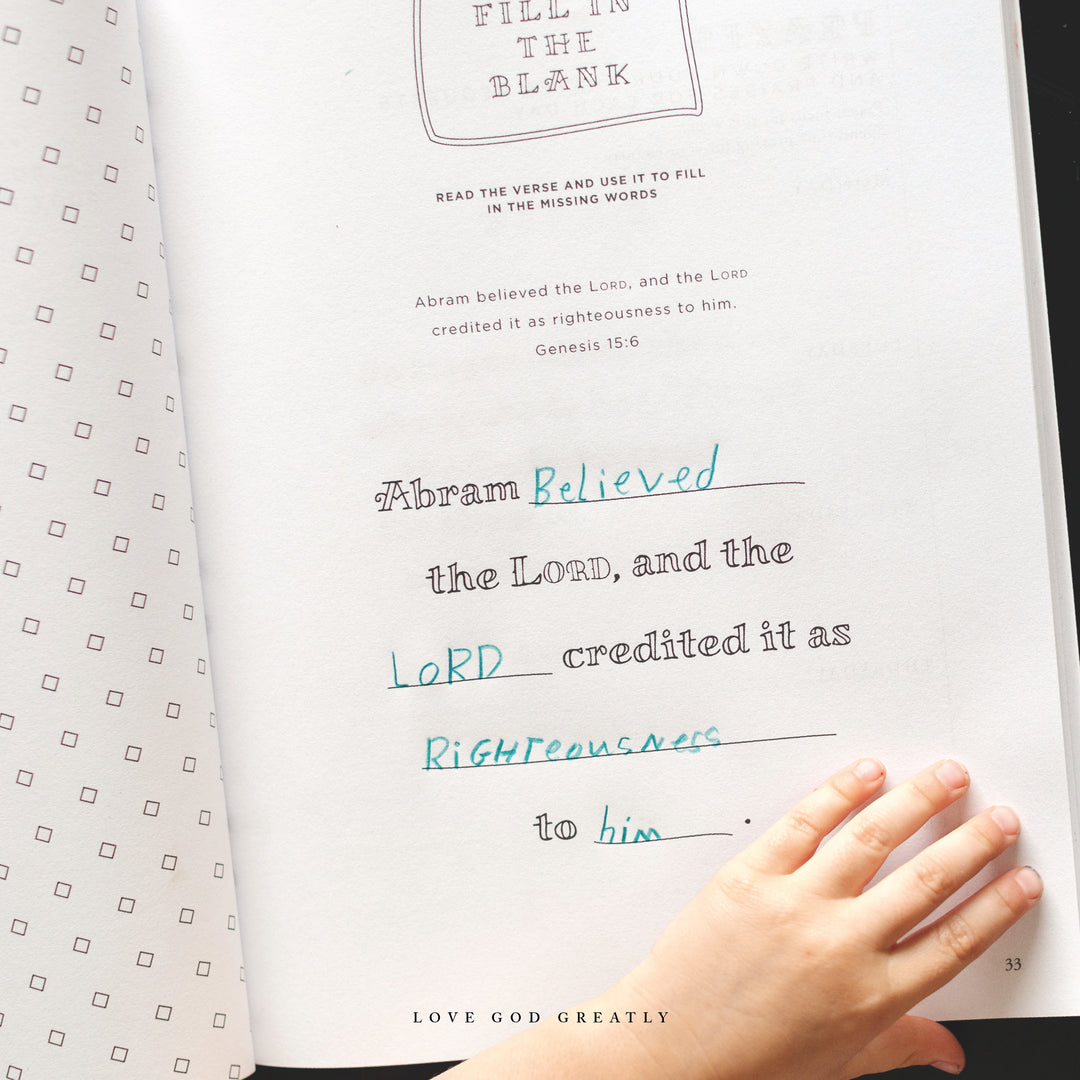 FILL IN
THE
BLANK
READ THE VERSE AND USE IT TO FILL
IN THE MISSING WORDS
Abram believed the LORD, and the LORD
credited it as righteousness to him.
Genesis 15:6
Abram Believed
the LORD, and the
LoRD credited it as
RiGHTeousNess
to him .
33
LOVE GOD GREATLY